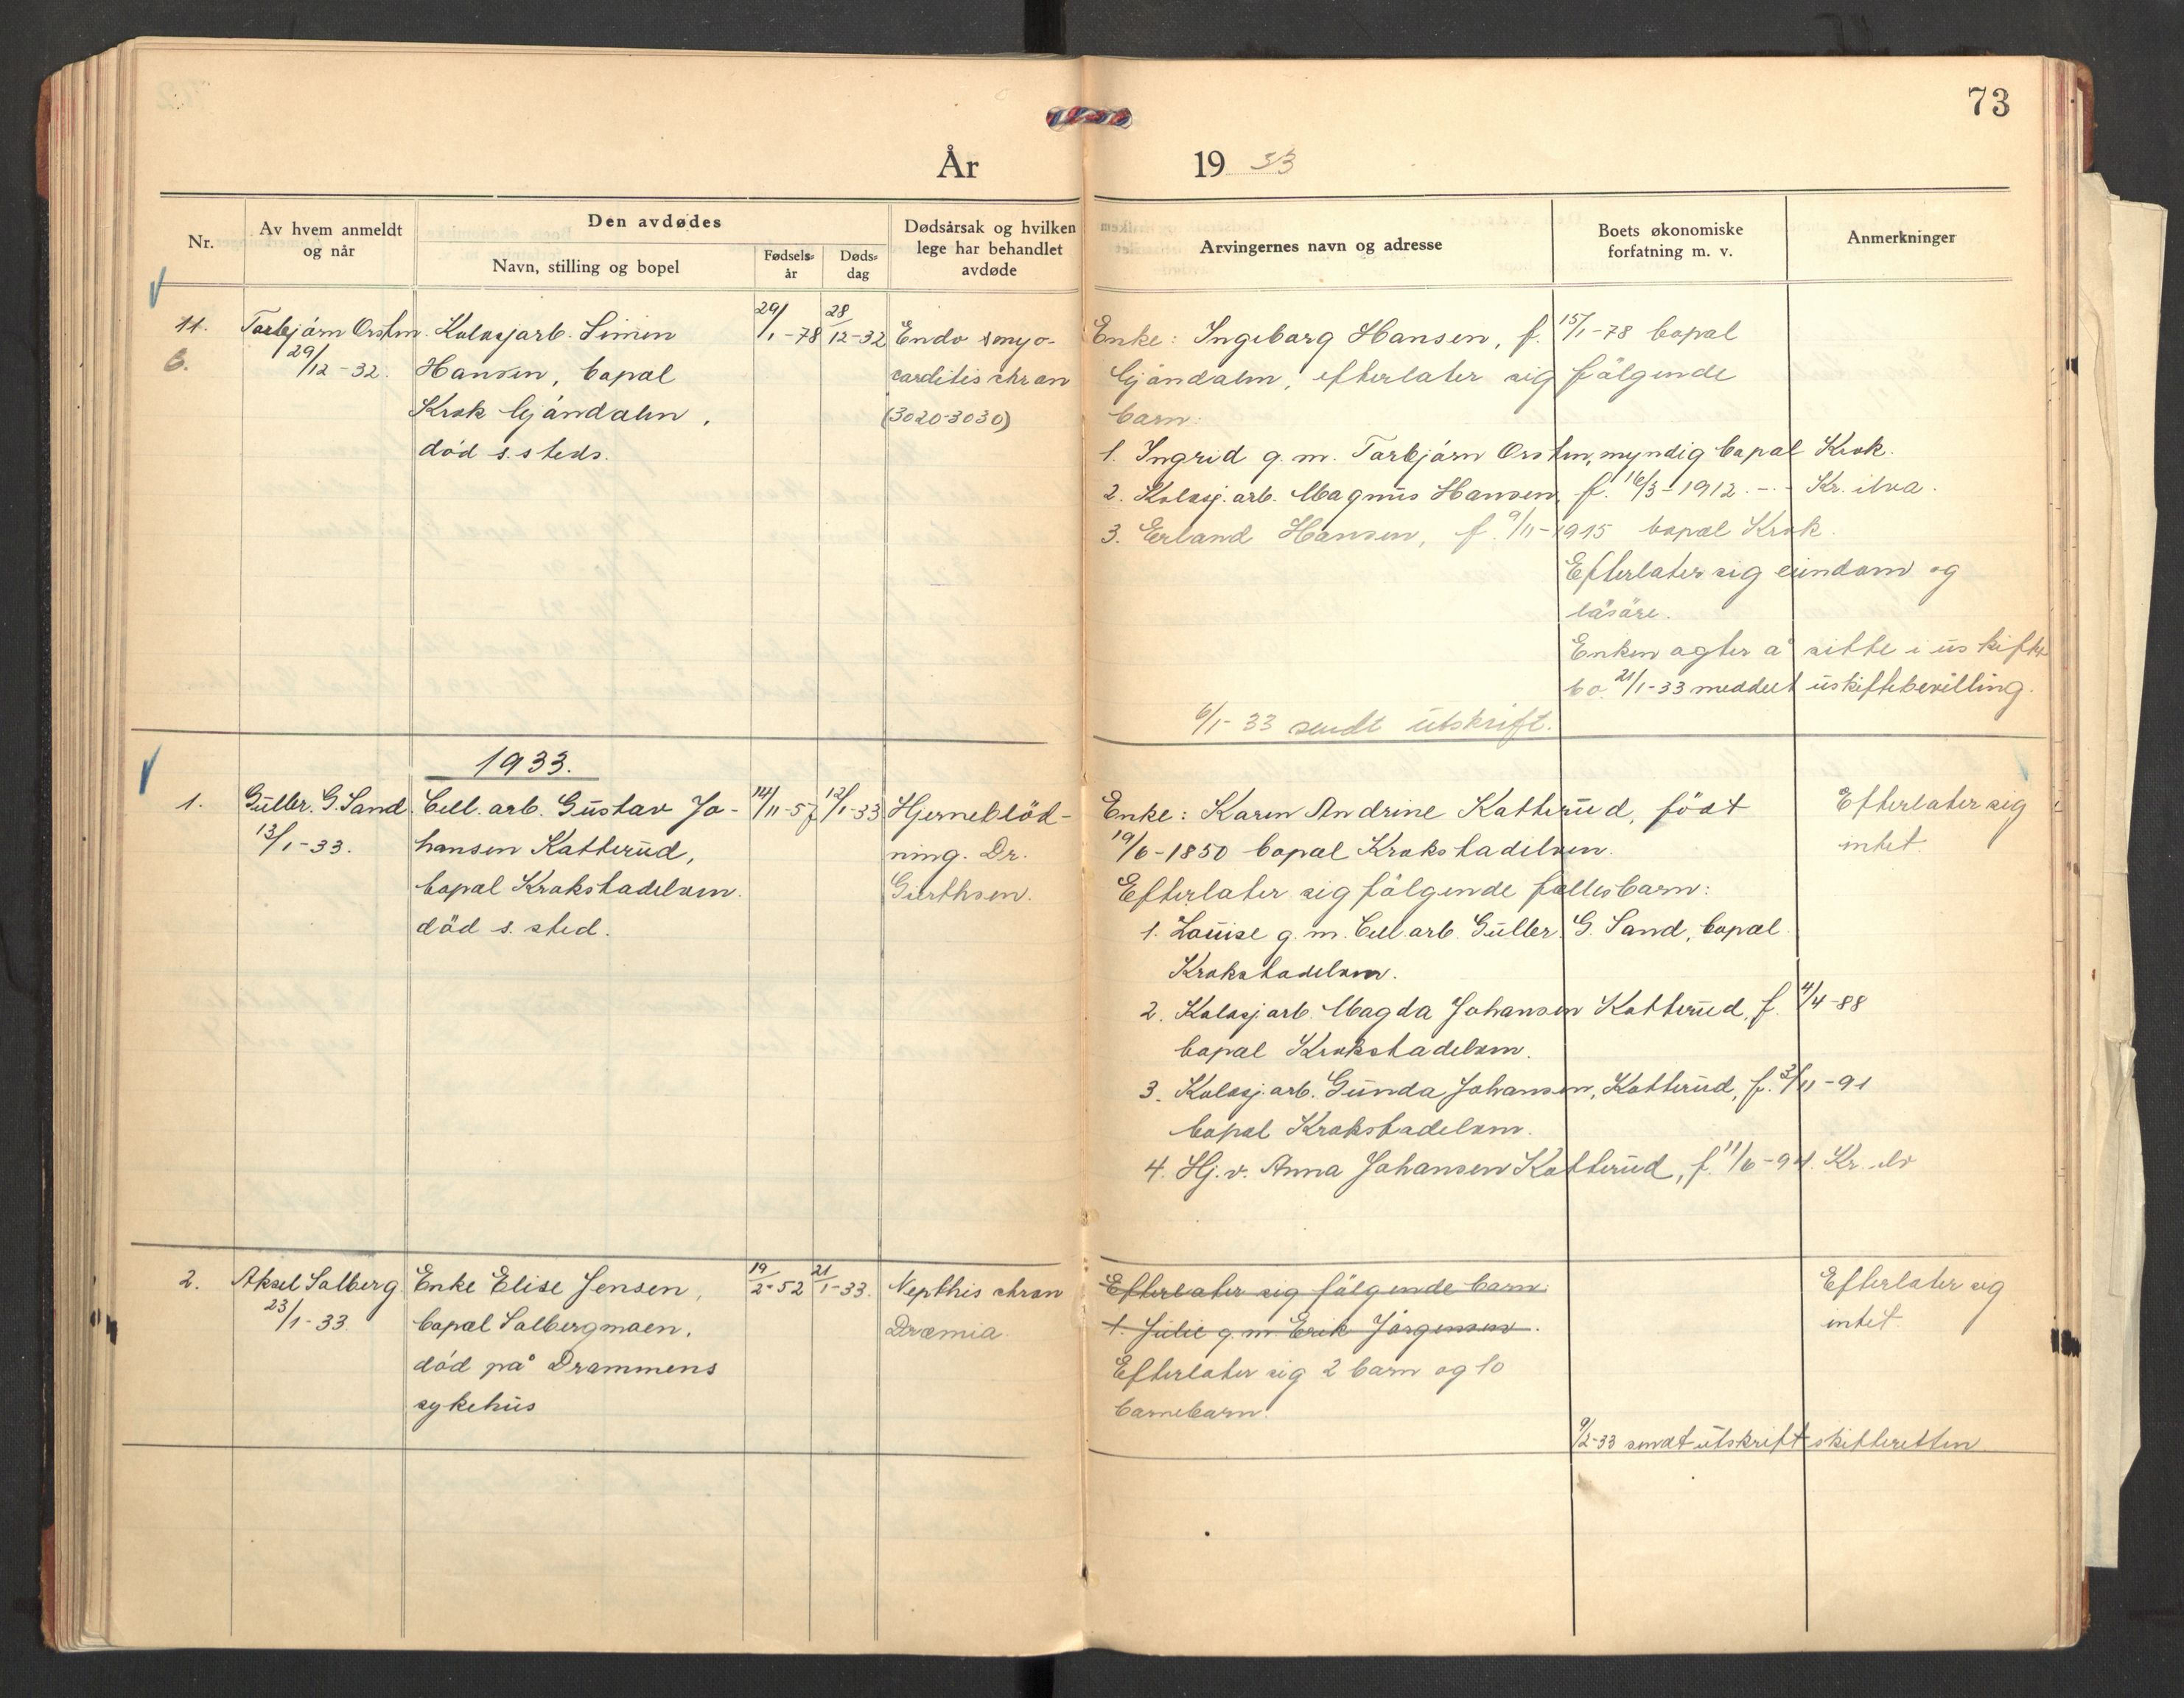 73
År 19 33
Nr.
Av hvem anmeldt og når
Den avdødes
Navn, stilling og bopel
Fødsels-år
Døds-dag
Dødsårsak og hvilken lege har behandlet avdøde
Arvingernes navn og adresse
Boets økonomiske forfatning m. v.
Anmerkninger
11.
6.
Torbjörn Orsten
29/12-32.
Kolosjarb. Simen
Hansen, bopal
Krok Mjöndalen,
död s. steds.
29/1-78
28/12-32
Endo & myo-
carditis chron
(3020-3030)
Enke: Ingeborg Hansen, f. 15/1-78 bopal
Mjöndalen, efterlater sig fölgende
barn:
1. Ingrid g. m. Torbjörn Orsten, myndig bopal Krok.
2. Kolosj. arb. Magnus Hansen, f. 16/3-1912. -.- Kr. elva.
3. Erland Hansen, f. 9/11-1915 bopæl Krok.
Efterlater sig eiendom og
lösöre.
Enken agter å sitte i uskiftet
bo. 21/1-33 meddelt uskiftebevilling.
6/1-33 sendt utskrift.
1933.
1.
Gulbr. G. Sand
13/1-33.
Cell. arb. Gustav Jo-
hansen Katterud,
bopal Krokstadelven.
död s. sted.
14/11-57
12/1-33
Hjerneblöd-
ning. Dr.
Enke: Karen Andrine Katterud, födt
19/6-1850 bopal Krokstadelven.
Efterlater sig fölgende fællesbarn:
1. Louise g. m. Cell. arb. Gulbr. G. Sand, bopæl
Krokstadelven.
2. Kolosj arb. Magda Johansen Katterud, f. 4/4-88
bopæl Krokstadelven.
3. Kolosj. arb. Gunda Johansen, Katterud, f. 3/11-91
bopal Krokstadelven.
4. Hj. v. Anna Johansen Katterud, f. 11/6-94. Kr. elv
Efterlater sig
intet.
2.
Aksel Solberg
23/1-33.
Enke Elise Jensen,
bopæl Solbergmoen,
död på Drammens
sykehus
19/2-52
21/1-33.
Nepthis chron
Uræmia
Efterlater sig fölgende barn:
1. Julie g. m. Erik Jörgensen.
Efterlater sig 2 barn og 10
barnebarn.
Efterlater sig
intet.
9/2-33 sendt utskrift skifteretten